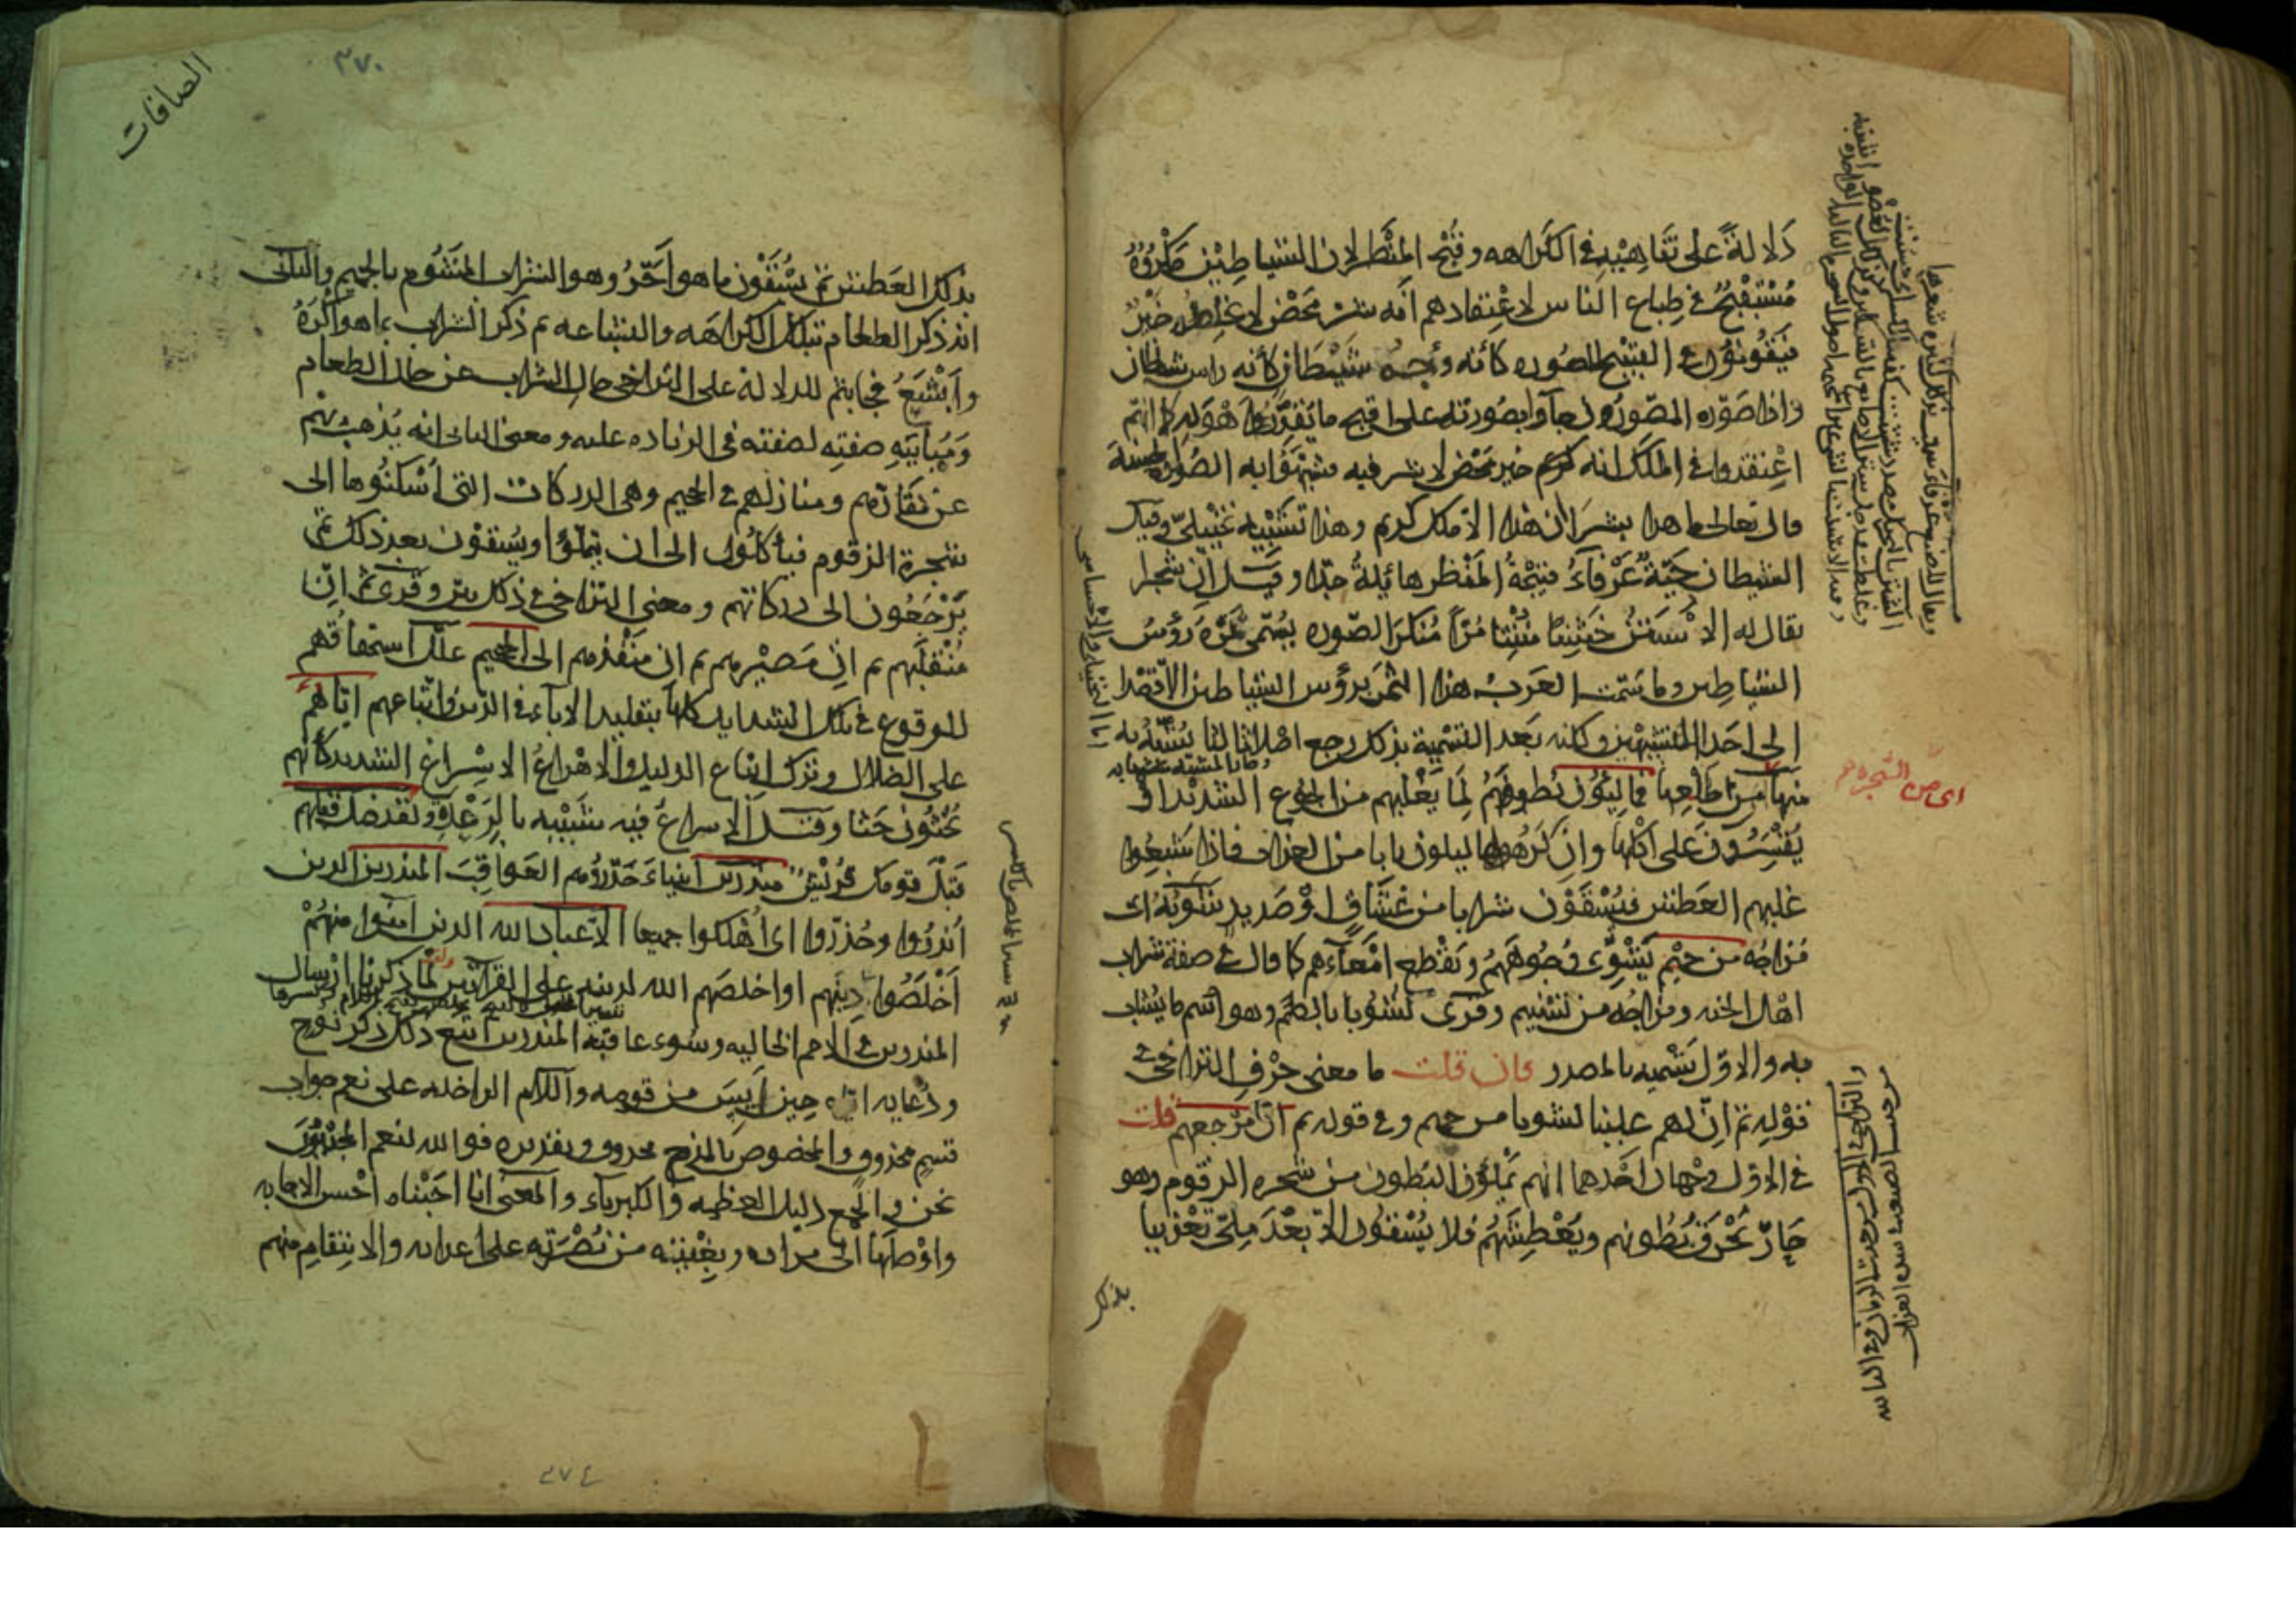 دلالة على تناهيه في الكراهه وقبح المنظر لان الشياطين مكروه
مستقبح في طباع الناس لاعتقادهم انه شر محض لا يخلطه خير
فيقولون في القبيح الصوره كأنه وجه شيطان كأنه راس شيطان
واذا صوره المصورون جآوا بصورته على اقبح ما يقدر واهوله كما انهم
اعتقدوا في الملك انه كريم خير محض لا شر فيه فشبهوا به الصوره الحسنة
قال تعالى ما هذا بشرا ان هذا الا ملك كريم وهذا تشبيه تخييلي وقيل
الشيطان حية عرفاء قبيحة المنظر هائلة جدا وقيل ان شجرا
يقال له الاستن خشنا منتنا مرا منكر الصوره يسمى ثمره رؤس
الشياطين وما سمت العرب هذا الثمر برؤس الشياطين الا قصدا
الى احد التشبيهين ولكنه بعد التسمية بذلك رجع اصلا ثالثا يشبه به
منها من طلعها فمالئون بطونهم لما يغلبهم من الجوع الشديد او
يقسرون على اكلها وان كرهوها ليكون بابا من العذاب فاذا شبعوا
غلبهم العطش فيسقون شرابا من غساق او صديد شوبه اى
مزاجه من حميم يشوى وجوههم ويقطع امعآءهم كما قال في صفة شراب
اهل الجنه ومزاجه من تسنيم وقرئ لشوبا بالضم وهو اسم ما يشاب
به والاول تسميه بالمصدر فان قلت ما معنى حرف التراخي في
قوله ثم ان لهم عليها لشوبا من حميم وفي قوله ثم ان مرجعهم قلت
في الاول وجهان احدهما انهم يملؤن البطون من شجره الزقوم وهو
حار يحرق بطونهم ويعطشهم فلا يسقون الا بعد ملي تعذيبا
بذلك
اى من الشجره
الصافات
٣٧٠
بذلك العطش ثم يسقون ما هو احر وهو الشراب المشوب بالحميم والثاني
انه ذكر الطعام بتلك الكراهه والبشاعه ثم ذكر الشراب بما هو اكره
وابشع فجا بثم للدلالة على التراخي حال الشراب عن حال الطعام
ومباينه صفته لصفته في الزياده عليه ومعنى الثاني انه يذهب بهم
عن مقارهم ومنازلهم في الجحيم وهي الدركات التي اسكنوها الى
شجرة الزقوم فيأكلون الى ان يتملؤا ويسقون بعد ذلك ثم
يرجعون الى دركاتهم ومعنى التراخي في ذلك بين وقرئ ثم ان
منقلبهم ثم ان مصيرهم ثم ان منفذهم الى الجحيم علل استحقاقهم
للوقوع في تلك الشدايد كلها بتقليد الاباء في الدين واتباعهم اياهم
على الضلال وترك اتباع الدليل والاهراع الاسراع الشديد كأنهم
يحثون حثا وقيل الاسراع فيه شبيه بالرعدة ولقد ضل قبلهم
قبل قومك قريش منذرين انبياء حذروهم العواقب المنذرين الذين
انذروا وحذروا اى اهلكوا جميعا الا عباد الله الذين امنوا منهم
اخلصوا دينهم او اخلصهم الله لدينه على القرآتين لما ذكرنا ارسال
المنذرين في الامم الخاليه وسوء عاقبة المنذرين اتبع ذلك ذكر نوح
ودعايه اياه حين ايس من قومه واللام الداخله على نعم جواب
قسم محذوف والمخصوص بالمدح محذوف تقديره فو الله لنعم المجيبون
نحن والجمع دليل العظمه والكبرياء والمعنى انا اجبناه احسن الاجابه
واوصلها الى مراده وبغيته من نصرته على اعدائه والانتقام منهم
٣٧٤